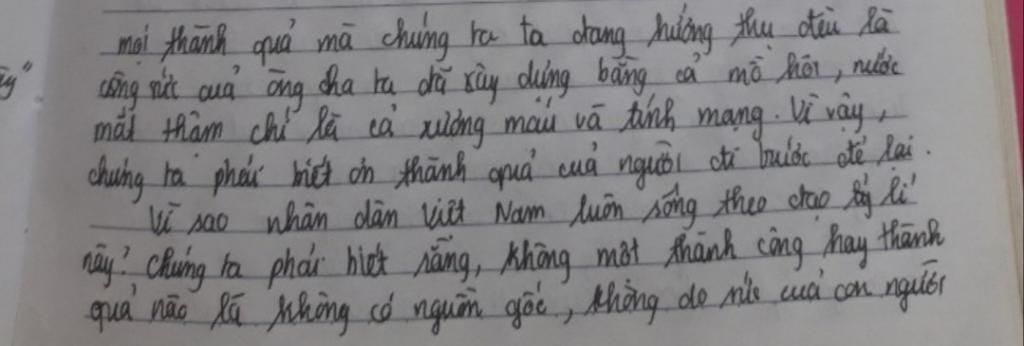 mọi thành quả mà chúng ta ta đang hưởng thụ đều là
công sức của ông cha ta đã xây dựng bằng cả mồ hôi, nước
mắt thậm chí là cả xương máu và tính mạng. Vì vậy,
chúng ta phải biết ơn thành quả của người đi trước để lại.
Vì sao nhân dân Việt Nam luôn sống theo đạo lí
này? Chúng ta phải biết rằng, không một thành công hay thành
quả nào là không có nguồn gốc, không do sức của con người